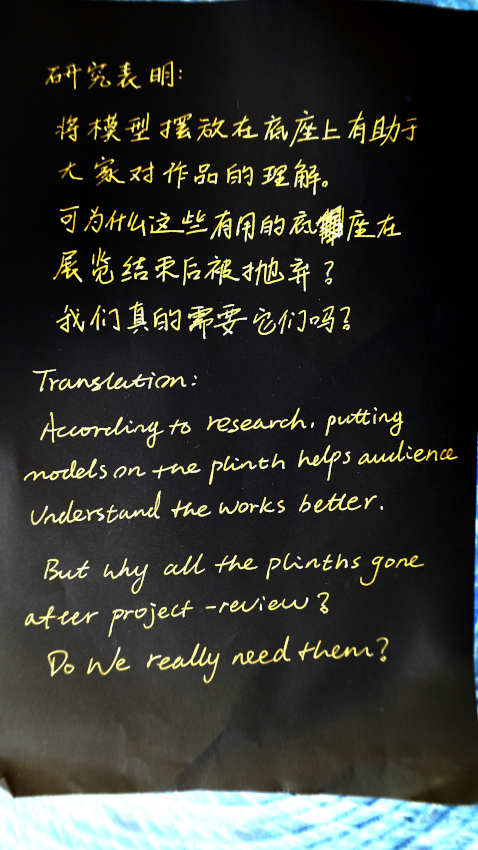 研究表明:
将模型摆放在底座上有助于
大家对作品的理解。
可为什么这些有用的底座在
展览结束后被抛弃?
我们真的需要它们吗?
Translation:
According to research, putting
models on the plinth helps audience
Understand the works better.
But why all the plinths gone
after project-review?
Do We really need them?